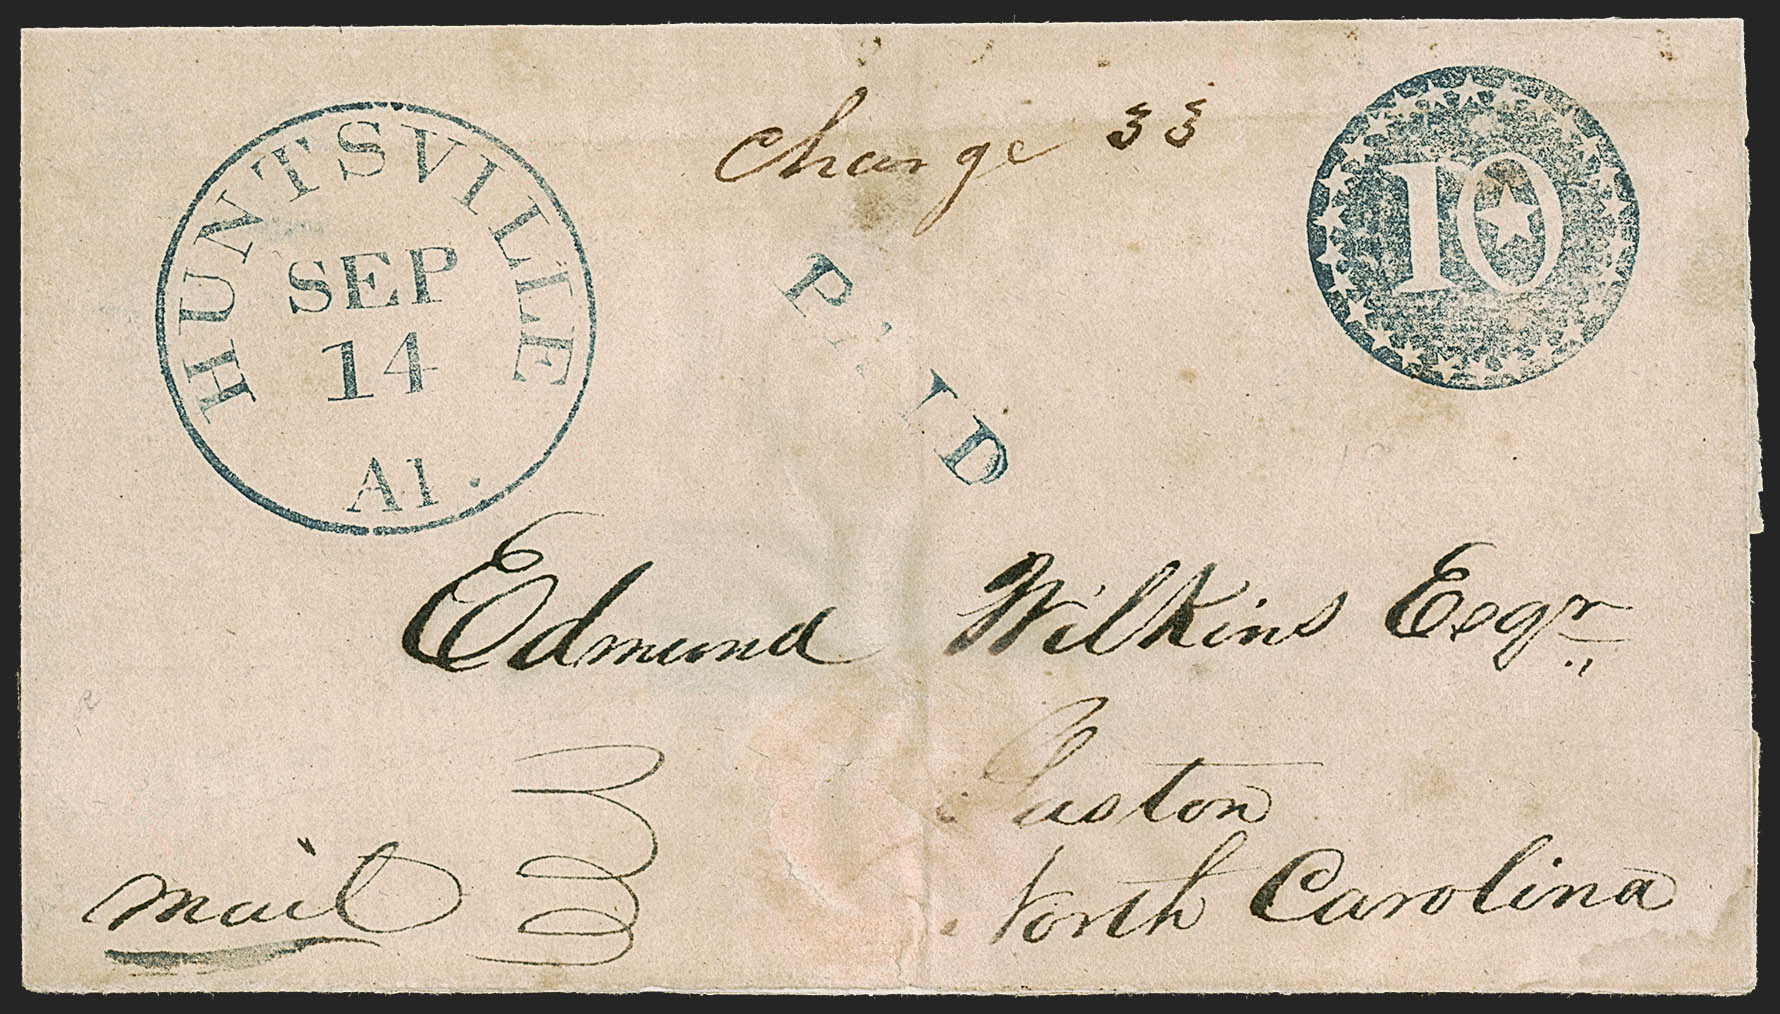 HUNTSVILLE
SEP
14
Al.
Charge 33
10
PAID
Edmund Wilkins Esqr
Gaston
North Carolina
mail